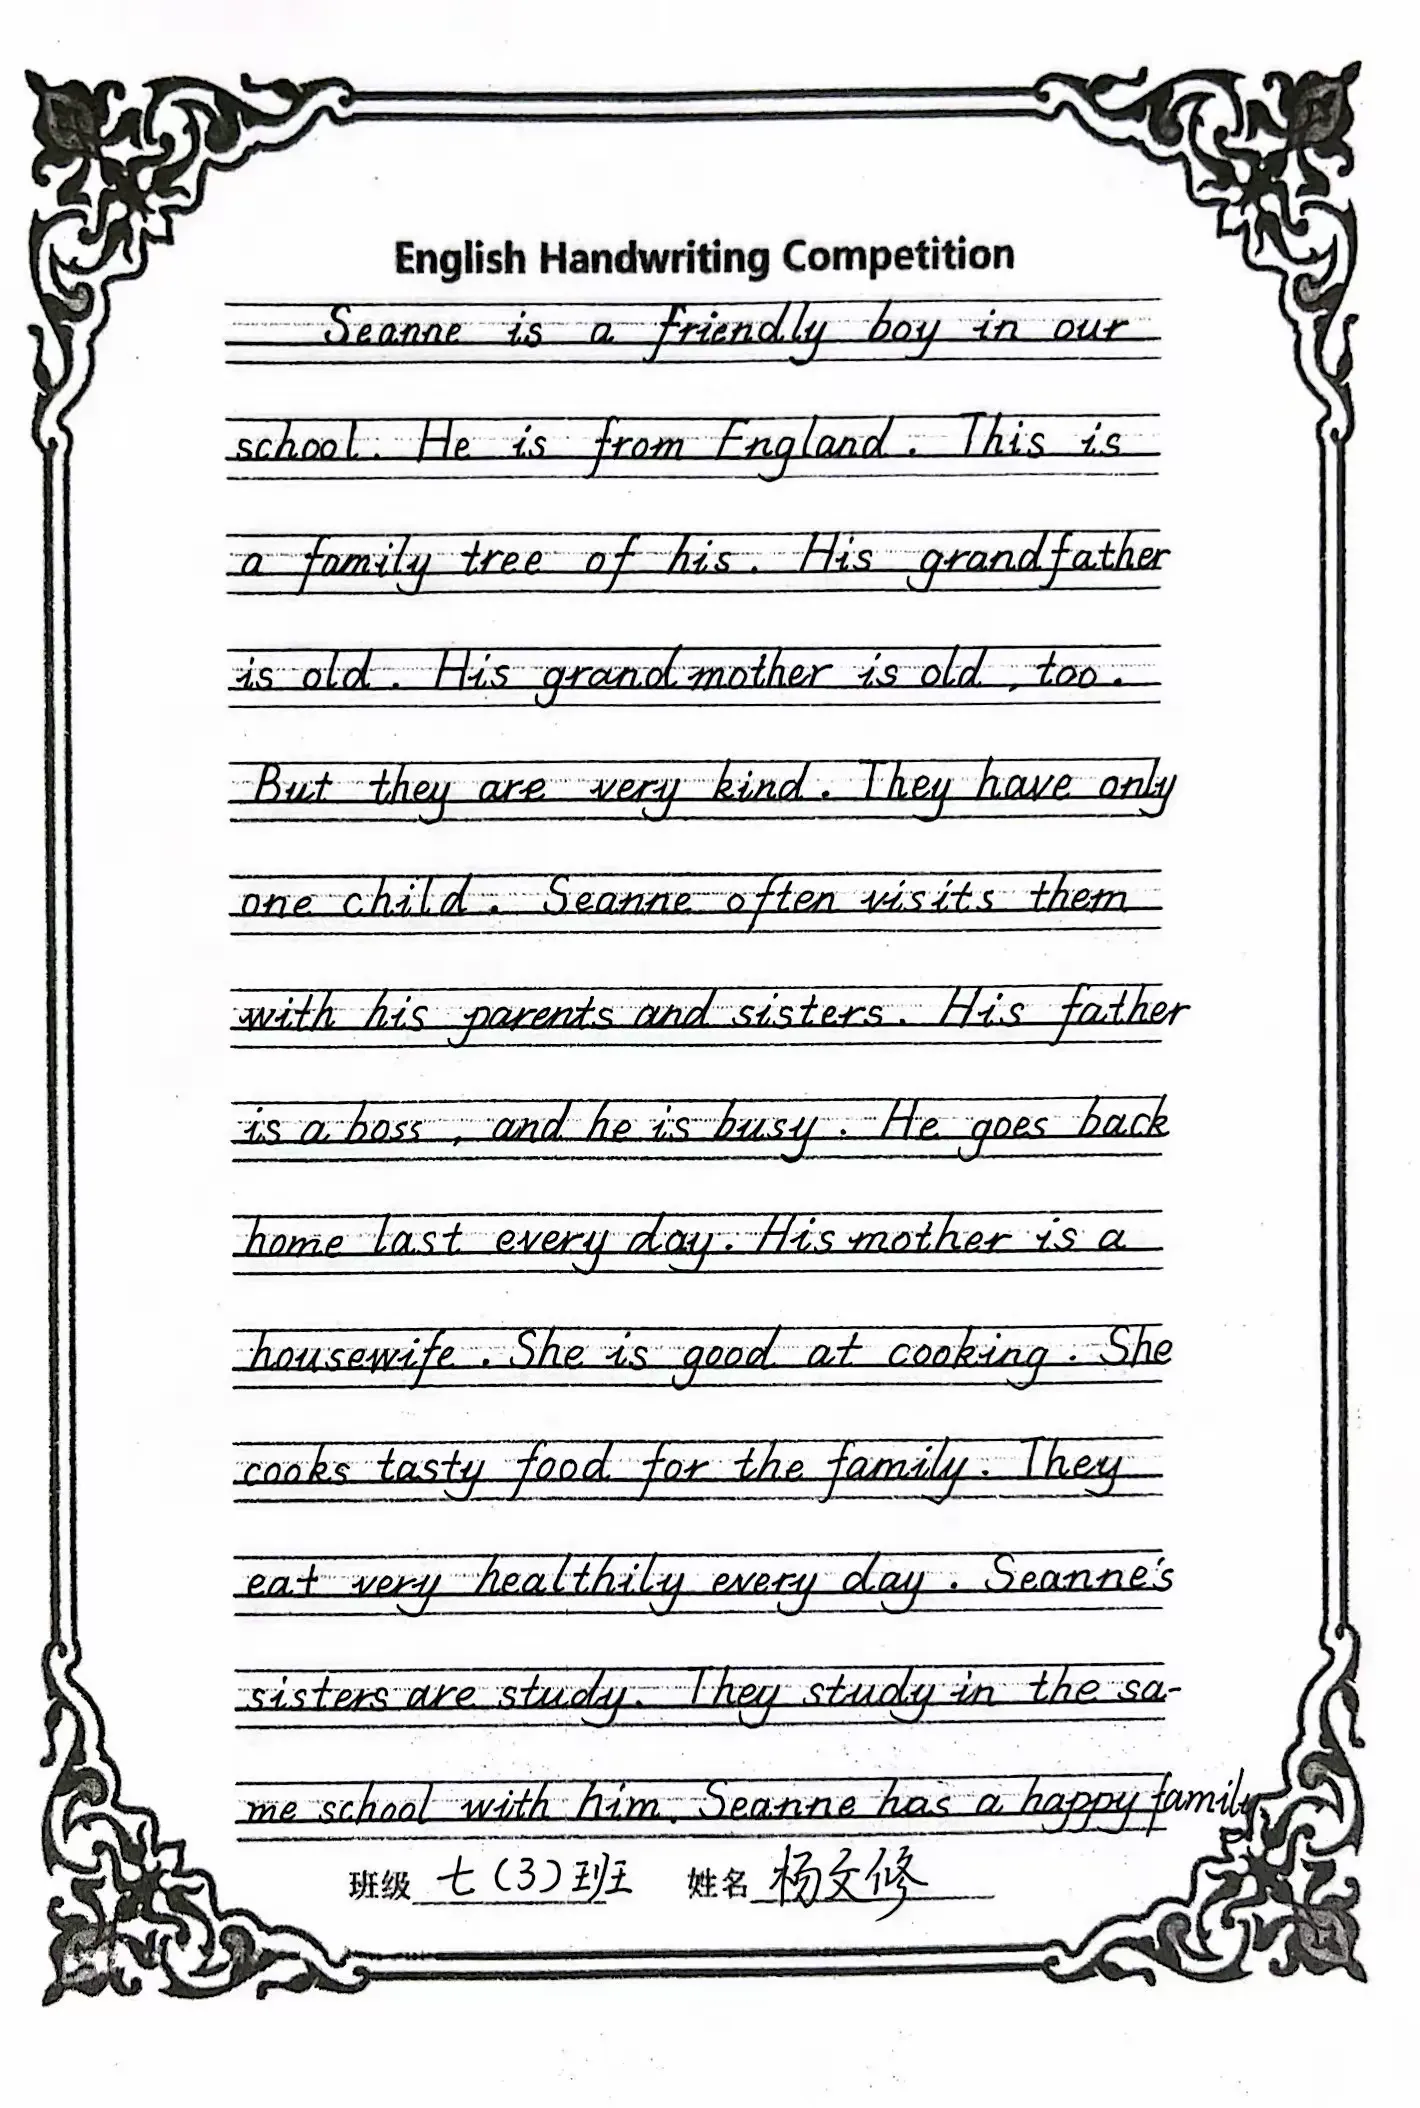 English Handwriting Competition
Seanne is a friendly boy in our
school. He is from England. This is
a family tree of his. His grandfather
is old. His grandmother is old, too.
But they are very kind. They have only
one child. Seanne often visits them
with his parents and sisters. His father
is a boss, and he is busy. He goes back
home last every day. His mother is a
housewife. She is good at cooking. She
cooks tasty food for the family. They
eat very healthily every day. Seanne's
sisters are study. They study in the sa-
me school with him. Seanne has a happy family
班级 七(3)班 姓名 杨文修